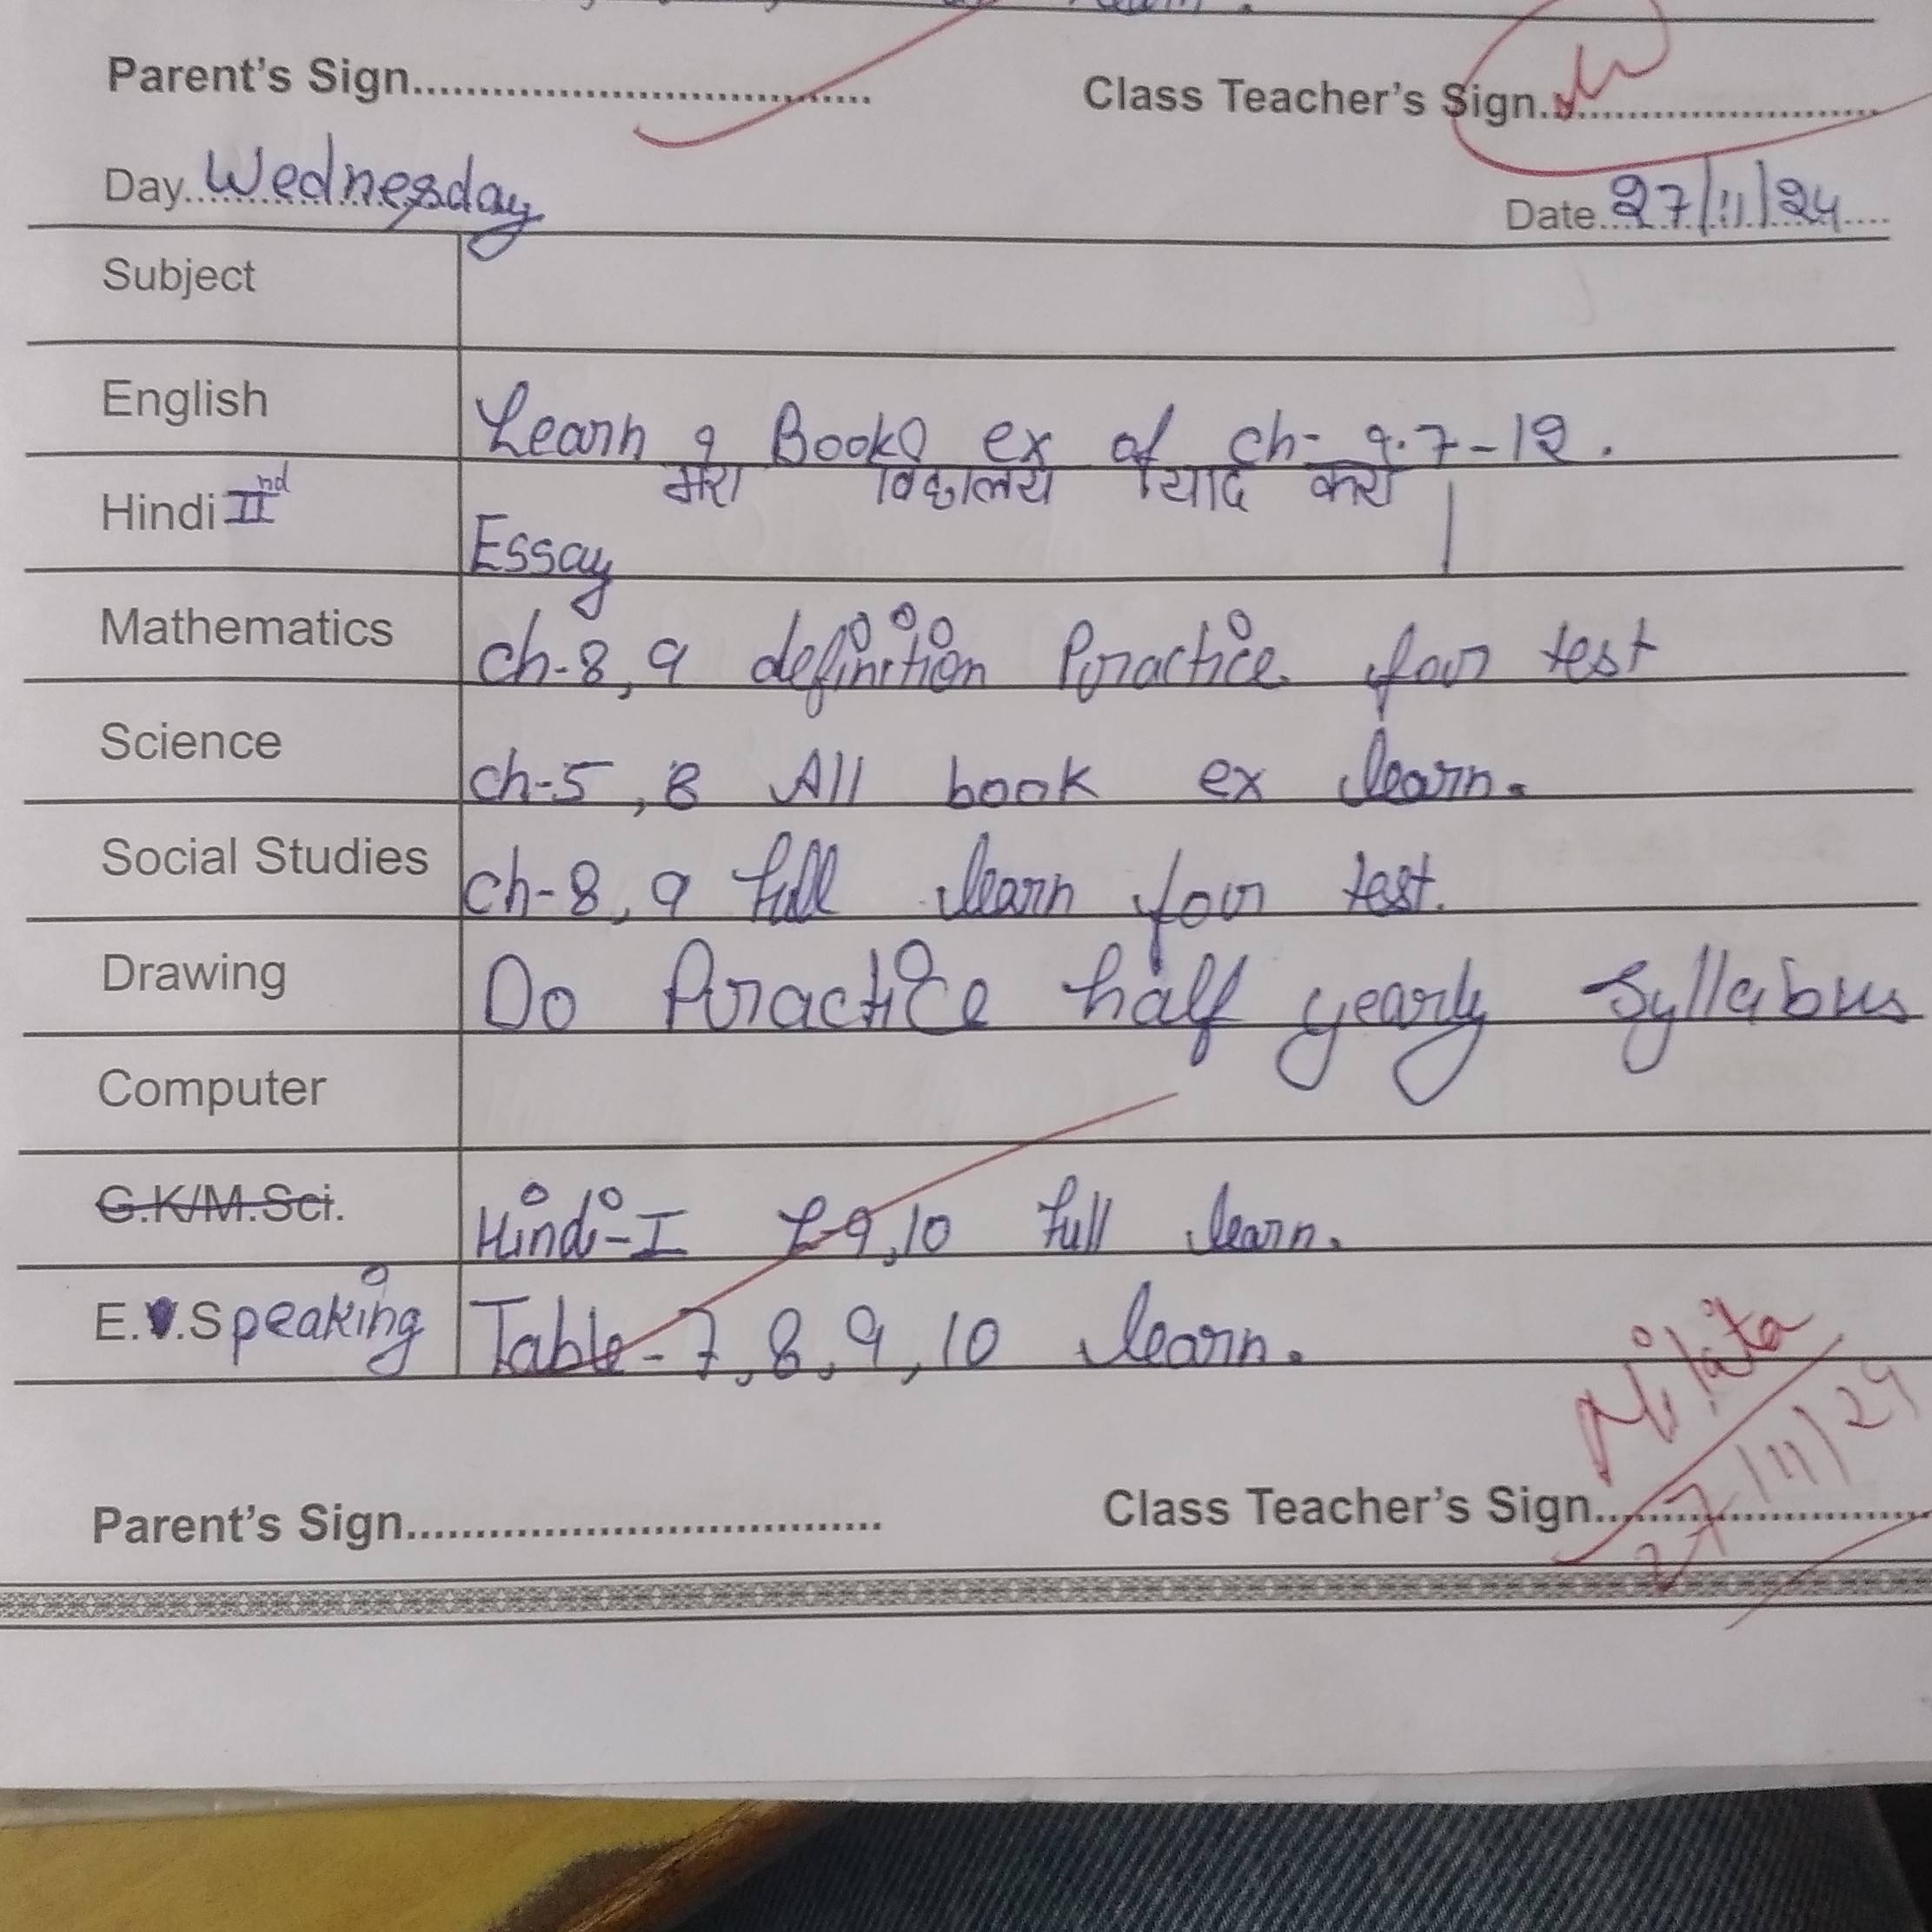 Parent's Sign............................ Class Teacher's Sign............................
Day Wednesday Date 27/11/24
Subject
English Learn 9 Books ex of ch- 9.7-12.
Hindi IInd Essay मेरा विद्यालय याद करो |
Mathematics ch-8, 9 definition Practice for test
Science ch-5, 8 All book ex learn.
Social Studies ch-8, 9 full learn for test.
Drawing Do Practice half yearly Syllabus
Computer
G.K/M.Sci. Hindi-I L-9,10 full learn.
E.V.Speaking Table-7, 8, 9, 10 learn.
27/11/24
Parent's Sign............................ Class Teacher's Sign............................